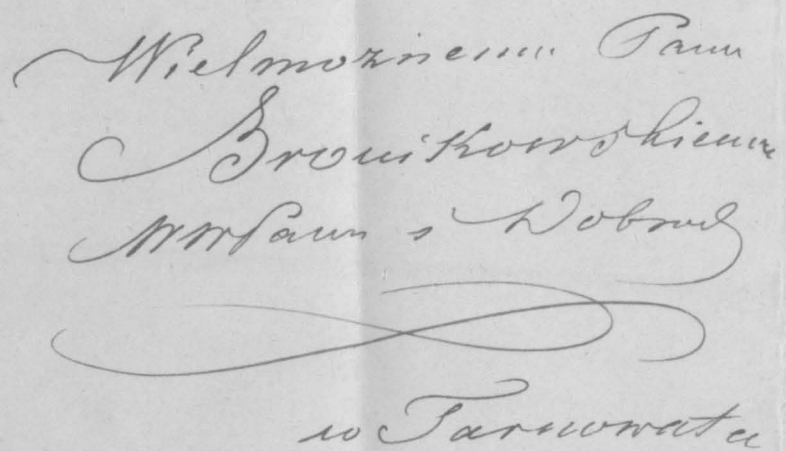 Wielmożnemu Panu
Bronikowskiemu
WWPanu i Dobrod
w Tarnowatce